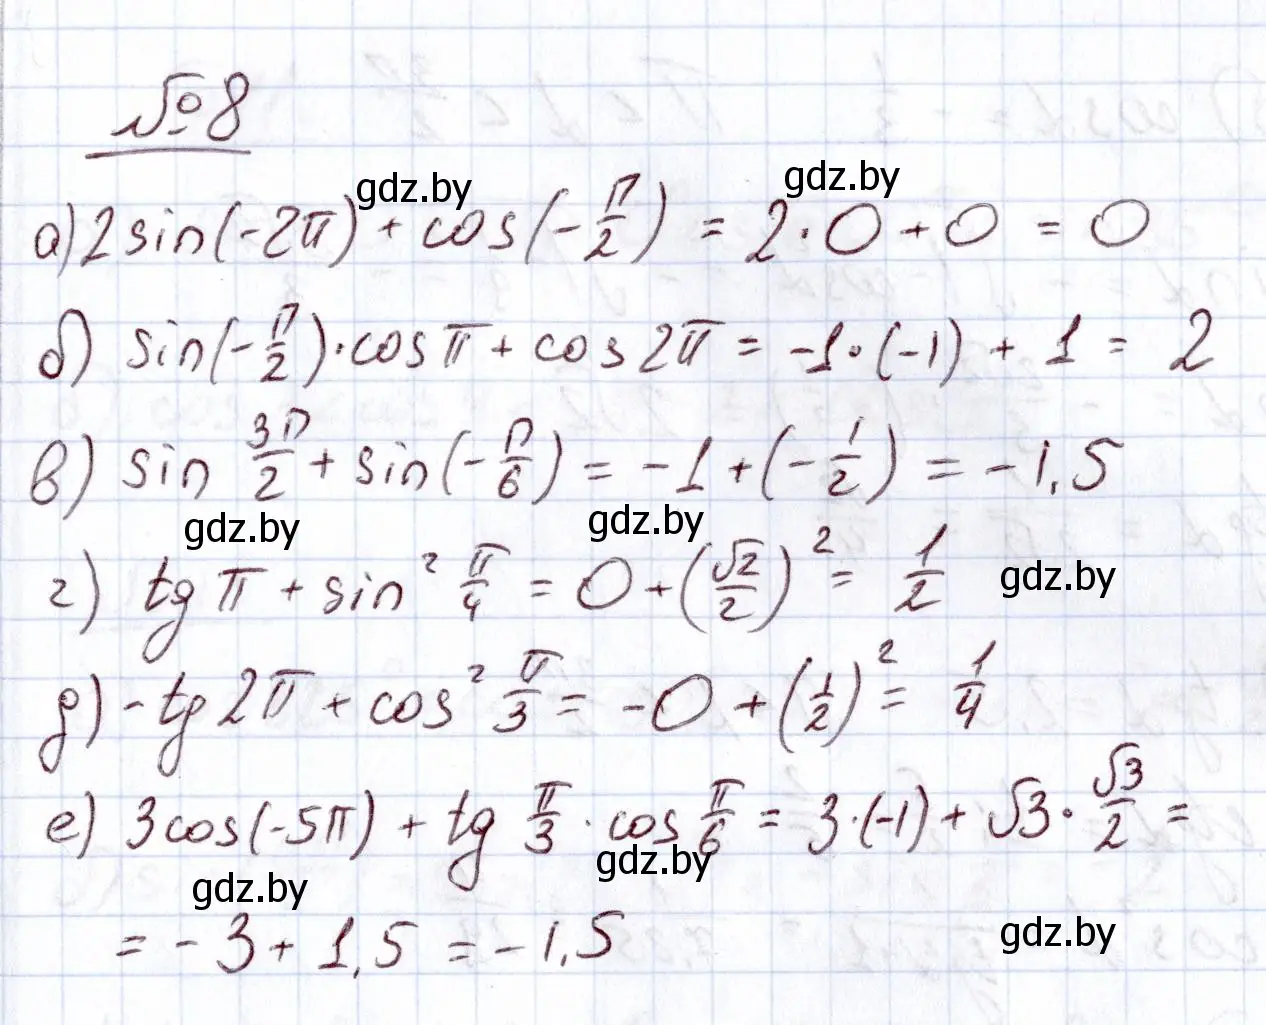 №8
gdz.by gdz.by
а) 2 sin(-2π) + cos(-π/2) = 2·0 + 0 = 0
б) sin(-π/2)·cos π + cos 2π = -1·(-1) + 1 = 2
в) sin 3π/2 + sin(-π/6) = -1 + (-1/2) = -1,5
gdz.by gdz.by
г) tg π + sin² π/4 = 0 + (√2/2)² = 1/2
gdz.by
д) -tg 2π + cos² π/3 = -0 + (1/2)² = 1/4
е) 3cos(-5π) + tg π/3 · cos π/6 = 3·(-1) + √3·√3/2 =
gdz.by gdz.by
= -3 + 1,5 = -1,5
gdz.by